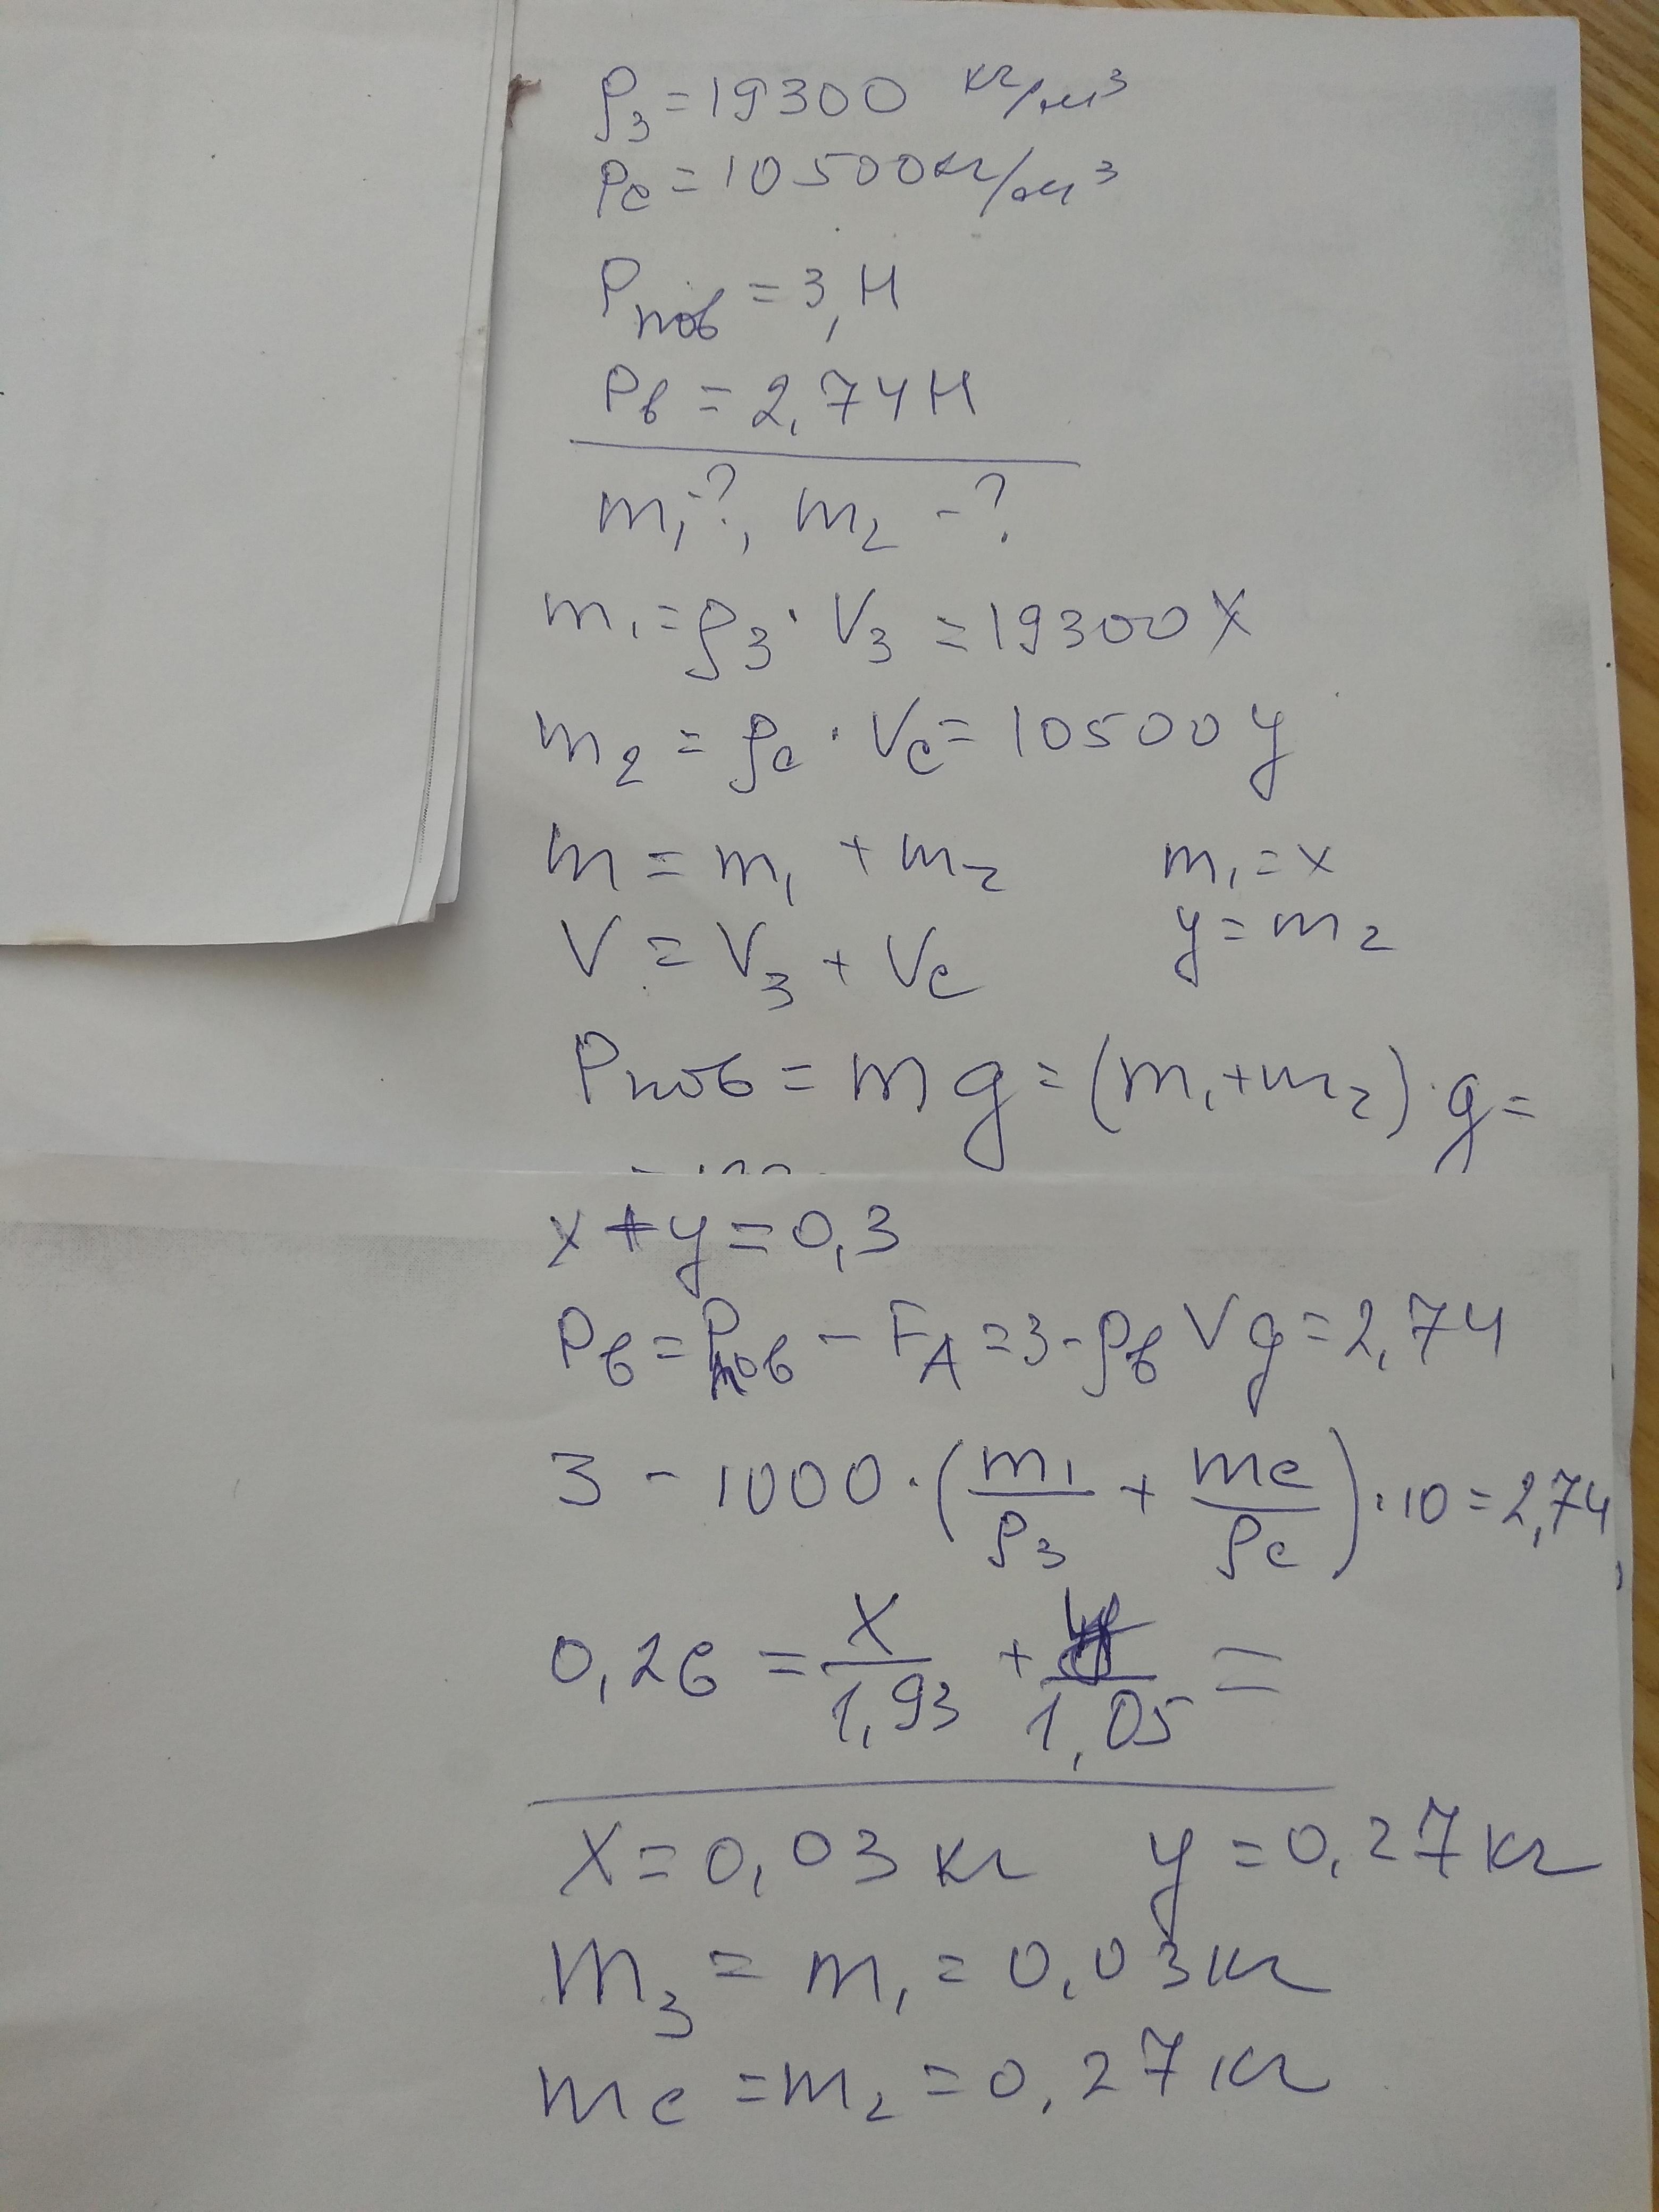 ρ₃ = 19300 кг/м³
ρс = 10500 кг/м³
Pпов = 3, Н
Pв = 2,74 Н
m₁ -?, m₂ -?
m₁ = ρ₃ · V₃ = 19300 X
m₂ = ρс · Vс = 10500 y
m = m₁ + m₂ m₁ = x
V = V₃ + Vс y = m₂
Pпов = mg = (m₁ + m₂) · g =
x + y = 0,3
Pв = Pпов - FА = 3 - ρв V g = 2,74
3 - 1000 · (m₁/ρ₃ + mс/ρс) · 10 = 2,74
0,26 = X/1,93 + y/1,05 =
X = 0,03 кг y = 0,27 кг
m₃ = m₁ = 0,03 кг
mс = m₂ = 0,27 кг